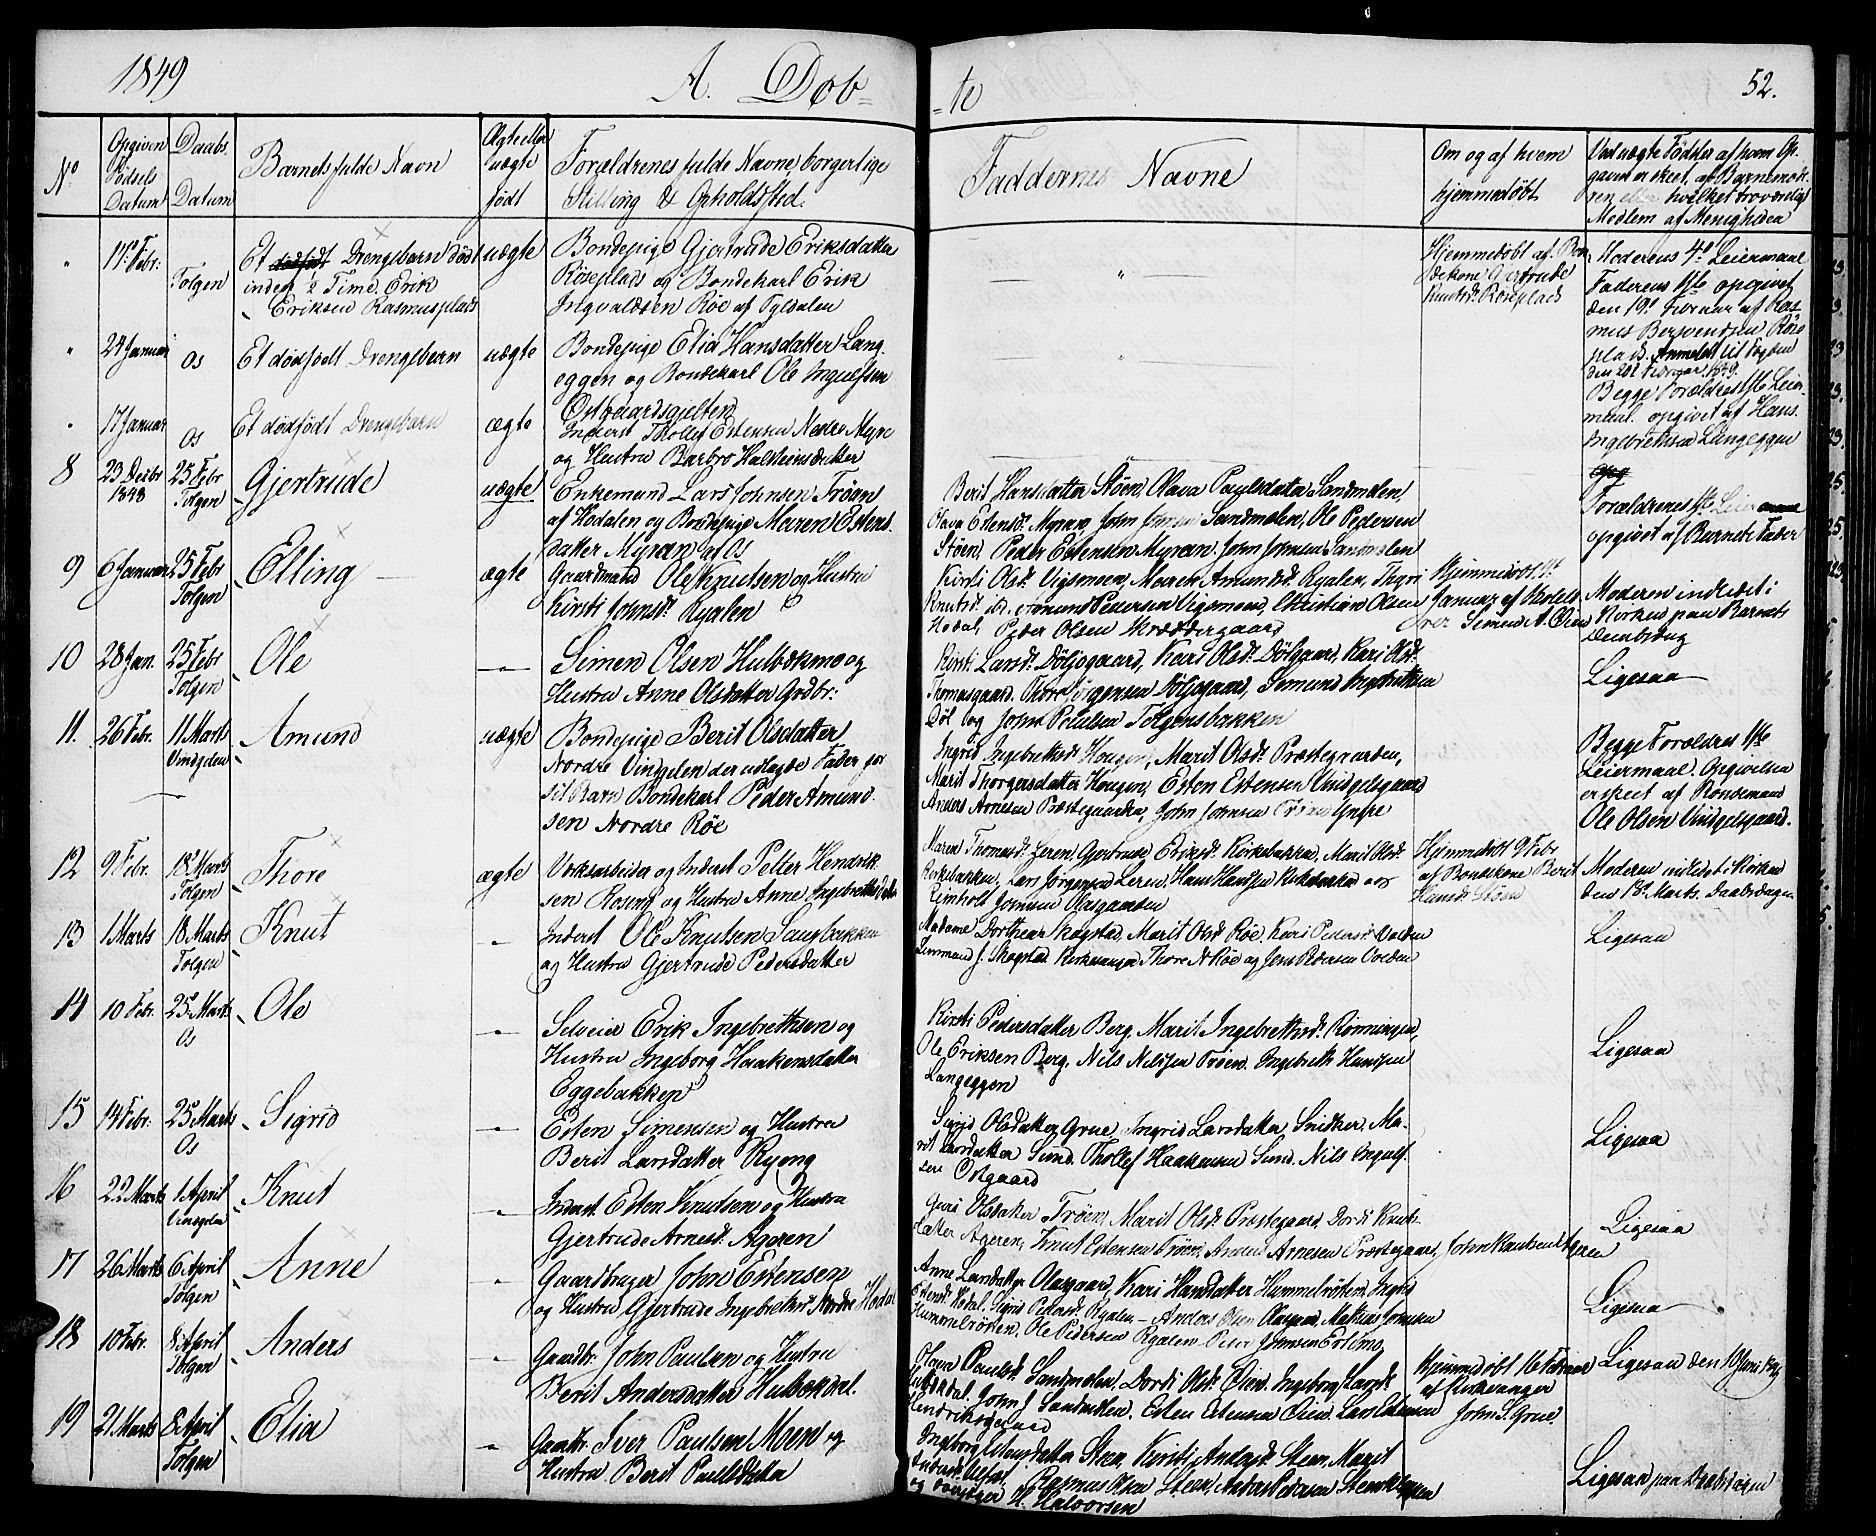 1849
A. Døb-
-te
52.
No
Opgiven Fødsels Datum
Daabs Datum
Barnets fulde Navn
Ægte eller uægte født
Forældrenes fulde Navne, borgerlige
Stilling & Opholdssted.
Faddernes Navne
Om og af hvem
hjemmedøbt
Ved uægte Fødsler af hvem Op-
gaven er skeet, af Barnemode-
ren eller hvilket troværdigt
Medlem af Menigheden
" 17de Febr: Tolgen
Et dødfødt Drengebarn død
inden 2 Time. Erik
Eriksen Rasmusplads
uægte
Bondepige Gjertrude Eriksdatter
Röseplads og Bondekarl Erik
Ingvaldsen Röe af Tyldalen
Hjemmedøbt af Bon-
dekone Gjertrude
Knutsd. Röseplads
Moderens 4de Leiermaal
Faderens 1ste opgivet
den 19de Februar af Ras-
mus Bersvendsen Röse-
plads. Anmeldt til Fogden
" 24 Januar Os
Et dødfødt Drengebarn
uægte
Bondepige Elia Hansdatter Lang-
eggen og Bondekarl Ole Ingulfsen
Ostgaardsgjelten
Begge Forældres 1ste Leier-
maal. opgivet af Hans
Ingebrethsen Langeggen
" 17 Januar Os
Et dødfødt Drengebarn
ægte
Inderst Thollef Estensen Nedre Myre
og Hustru Barbro Halsteinsdatter
8 23 Decbr 1848 25 Febr Tolgen
Gjertrude
uægte
Enkemand Lars Johnsen Trøen
af Hodalen og Bondepige Maren Estens-
datter Myran af Os
Berit Hansdatter Støen, Olava Paulsdatter Sandmelen,
Olava Estensd. Myran, John Johnsen Sandmelen, Ole Pedersen
Støen, Peder Estensen Myran, John Johnsen Sandmelen
Forældrenes 1ste Leiermaal
opgivet af Barnets Fader
9 6 Januar 25 Febr Tolgen
Elling
ægte
Gaardmand Ole Knutsen og Hustru
Kirsti Johnsd. Rydalen
Kirsti Olsd. Vigsmoen, Maren Amundsd. Rydalen, Thyri
Knutsd. ibd. Amund Pedersen Vigsmoen, Christian Olsen
Hodal, Peder Olsen Skræddergaard
Hjemmedøbt 9de
Januar af Skolelæ-
rer Simen A. Øien
Moderen indledet i
Kirken paa Barnets
Daabsdag
10 28 Jan. 25 Febr Tolgen
Ole
"
Simen Olsen Hulbækmo og
Hustru Anne Olsdatter Gdbr:
Kirsti Larsd. Döljegaard, Kari Olsd. Dölgaard, Kari Olsd.
Thomasgaard, Thore Jörgensen Döljegaard, Simund Ingebrethsen
Döl og John Poulsen Tolgensbakken
Ligesaa
11. 26 Febr. 11 Marts Vindgelen
Amund
uægte
Bondepige Berit Olsdatter
Nordre Vingelen der udlagde Fader for
sit Barn Bondekarl Peder Amund-
sen Nordre Röe
Ingrid Ingebrethsd. Hougen, Marit Olsd. Præstegaarden,
Marit Thorgersdatter Hougen, Esten Estensen Vindgelsgaard
Anders Arnesen Præstegaarden, John Johnsen
Begge Forældres 1ste
Leiermaal. Opgivelsen
er skeet af Bondemand
Ole Olsen Vindgelsgaard.
12 9 Febr. 18 Marts Tolgen
Thore
ægte
Værksarbeider og Inderst Petter Hendrik-
sen Rosing og Hustru Anne Ingebrethsdatter
Maren Thomasd. Leren, Gjertrude Eriksd. Kirkebakken, Marit Olsd.
Kirkebakken, Lars Jörgensen Leren, Hans Hansen Kirkebakken og
Reinholt Johnsen Olasgaarden
Hjemmedøbt 9 Febr
af Bondekone Berit
Hansd. Støen
Moderen inledet i Kirken
den 18de Marts. Daabsdagen
13 1 Marts 18 Marts Tolgen
Knut
"
Inderst Ole Knutsen Saugbakken
og Hustru Gjertrude Pedersdatter
Madame Dorthea Skogstad, Marit Olsd. Röe, Kari Pedersd. Volden
Lensmand J. Skogstad, Kirkesanger Thore A Röe og Jens Pedersen Volden
Ligesaa
14 10 Febr. 25 Marts Os
Ole
"
Selveier Erik Ingebrethsen og
Hustru Ingeborg Haakensdatter
Eggebakken
Kirsti Pedersdatter Berg, Marit Ingebrethsd. Rönningen,
Ole Eriksen Berg, Nils Nilsen Trøen, Ingebreth Hansen
Langeggen
Ligesaa
15 14 Febr: 25 Marts Os
Sigrid
"
Esten Simensen og Hustru
Berit Larsdatter Ryeng
Sigrid Olsdatter Grue, Ingrid Larsdatter Snidker, Ma-
rit Larsdatter Sund, Thollef Haakensen Sund, Nils Ingulf-
sen Osgaard
Ligesaa
16 22 Marts 1 April Vindgelen
Knut
"
Inderst Esten Knudsen og Hustru
Gjertrude Arnesd. Ageren
Guri Olsdatter Trøen, Marit Olsd. Præstegaard, Dordi Knuts-
datter Ageren, Knut Estensen Trøen, Anders Arnesen Præstegaard, John Knutsen Ageren
Ligesaa
17 26 Marts 6 April Tolgen
Anne
"
Gaardbruger John Estensen
og Hustru Gjertrude Ingebrethsd. Nordre Hodal
Anne Larsdatter Olasgaard, Kari Hansdatter Hummelvolden, Ingrid
Estensd. Hodal, Sigrid Pedersd. Rydalen - Anders Olsen Olasgaard, Mathias Johnsen
Hummelvolden, Ole Pedersen Rydalen
Ligesaa
18 10 Febr. 8 April Tolgen
Anders
"
Gaardbr. John Paulsen og Hustru
Berit Andersdatter Hulbækdal.
Olava Paulsd. Sandmelen, Dordi Olsd. Øien, Ingeborg Larsd.
Hulbækdal, John J. Sandmelen, Esten Estensen Øien, Lars Estensen
Hendriksgaard
Hjemmedøbt 16 Februar
af Kirkesanger
John S. Grue
Ligesaa den
19 21 Marts 8 April Tolgen
Elia
"
Gaardbr. Iver Paulsen Moen og
Hustru Berit Paulsdatter
Ingeborg Clausdatter Steen, Kirsti Andersd. Steen, Marit
Rasmus Olsen Steen, Anders Pedersen
H. Halvorsen
Ligesaa paa Daabsdagen